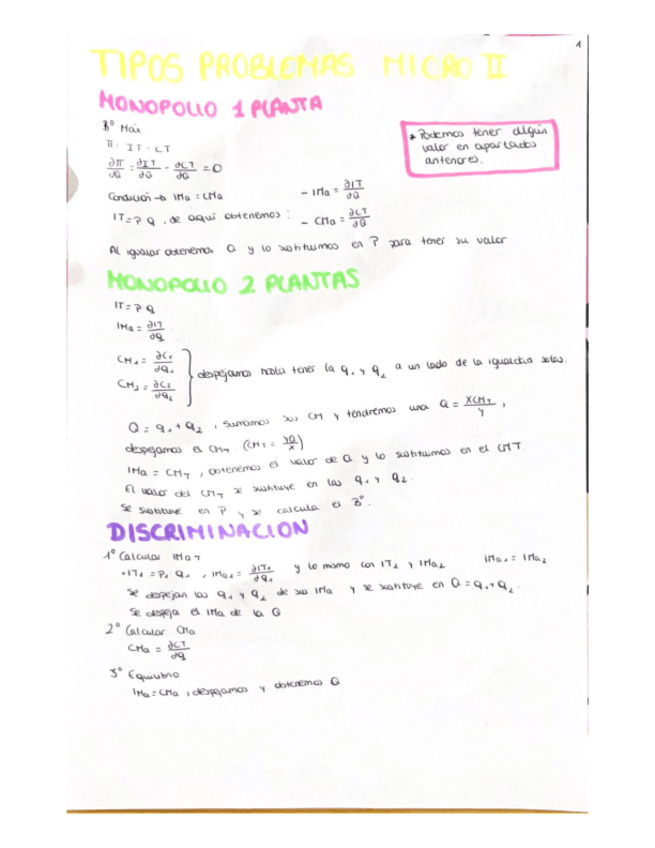 1
TIPOS PROBLEMAS MICRO II
MONOPOLIO 1 PLANTA
Bº Max
π: IT - CT
∂π/∂Q = ∂IT/∂Q - ∂CT/∂Q = 0
* Podemos tener algún
valor en apartados
anteriores.
Condición → IMa = CMa
- IMa = ∂IT/∂Q
IT = P Q , de aquí obtenemos :
- CMa = ∂CT/∂Q
Al igualar obtenemos Q y lo sustituimos en P para tener su valor
MONOPOLIO 2 PLANTAS
IT = P Q
IMa = ∂IT/∂Q
CM₁ = ∂C₁/∂q₁
CM₂ = ∂C₂/∂q₂
despejamos hasta tener la q₁ y q₂ a un lado de la igualdad solas.
Q = q₁ + q₂ , sumamos sus CM y tendremos una Q = XCM_T/Y ,
despejamos el CM_T. (CM_T = YQ/X)
IMa = CM_T , obtenemos el valor de Q y lo sustituimos en el CMT.
El valor del CM_T se sustituye en las q₁ y q₂.
Se sustituye en P y se calcula el Bº.
DISCRIMINACION
1º Calcular IMa T
· IT₁ = P₁ Q₁ , IMa₁ = ∂IT₁/∂q₁ y lo mismo con IT₂ y IMa₂ IMa₁ = IMa₂
Se despejan las q₁ y q₂ de sus IMa y se sustituye en Q = q₁ + q₂.
Se despeja el IMa de la Q
2º Calcular CMa
CMa = ∂CT/∂Q
3º Equilibrio
IMa = CMa , despejamos y obtenemos Q